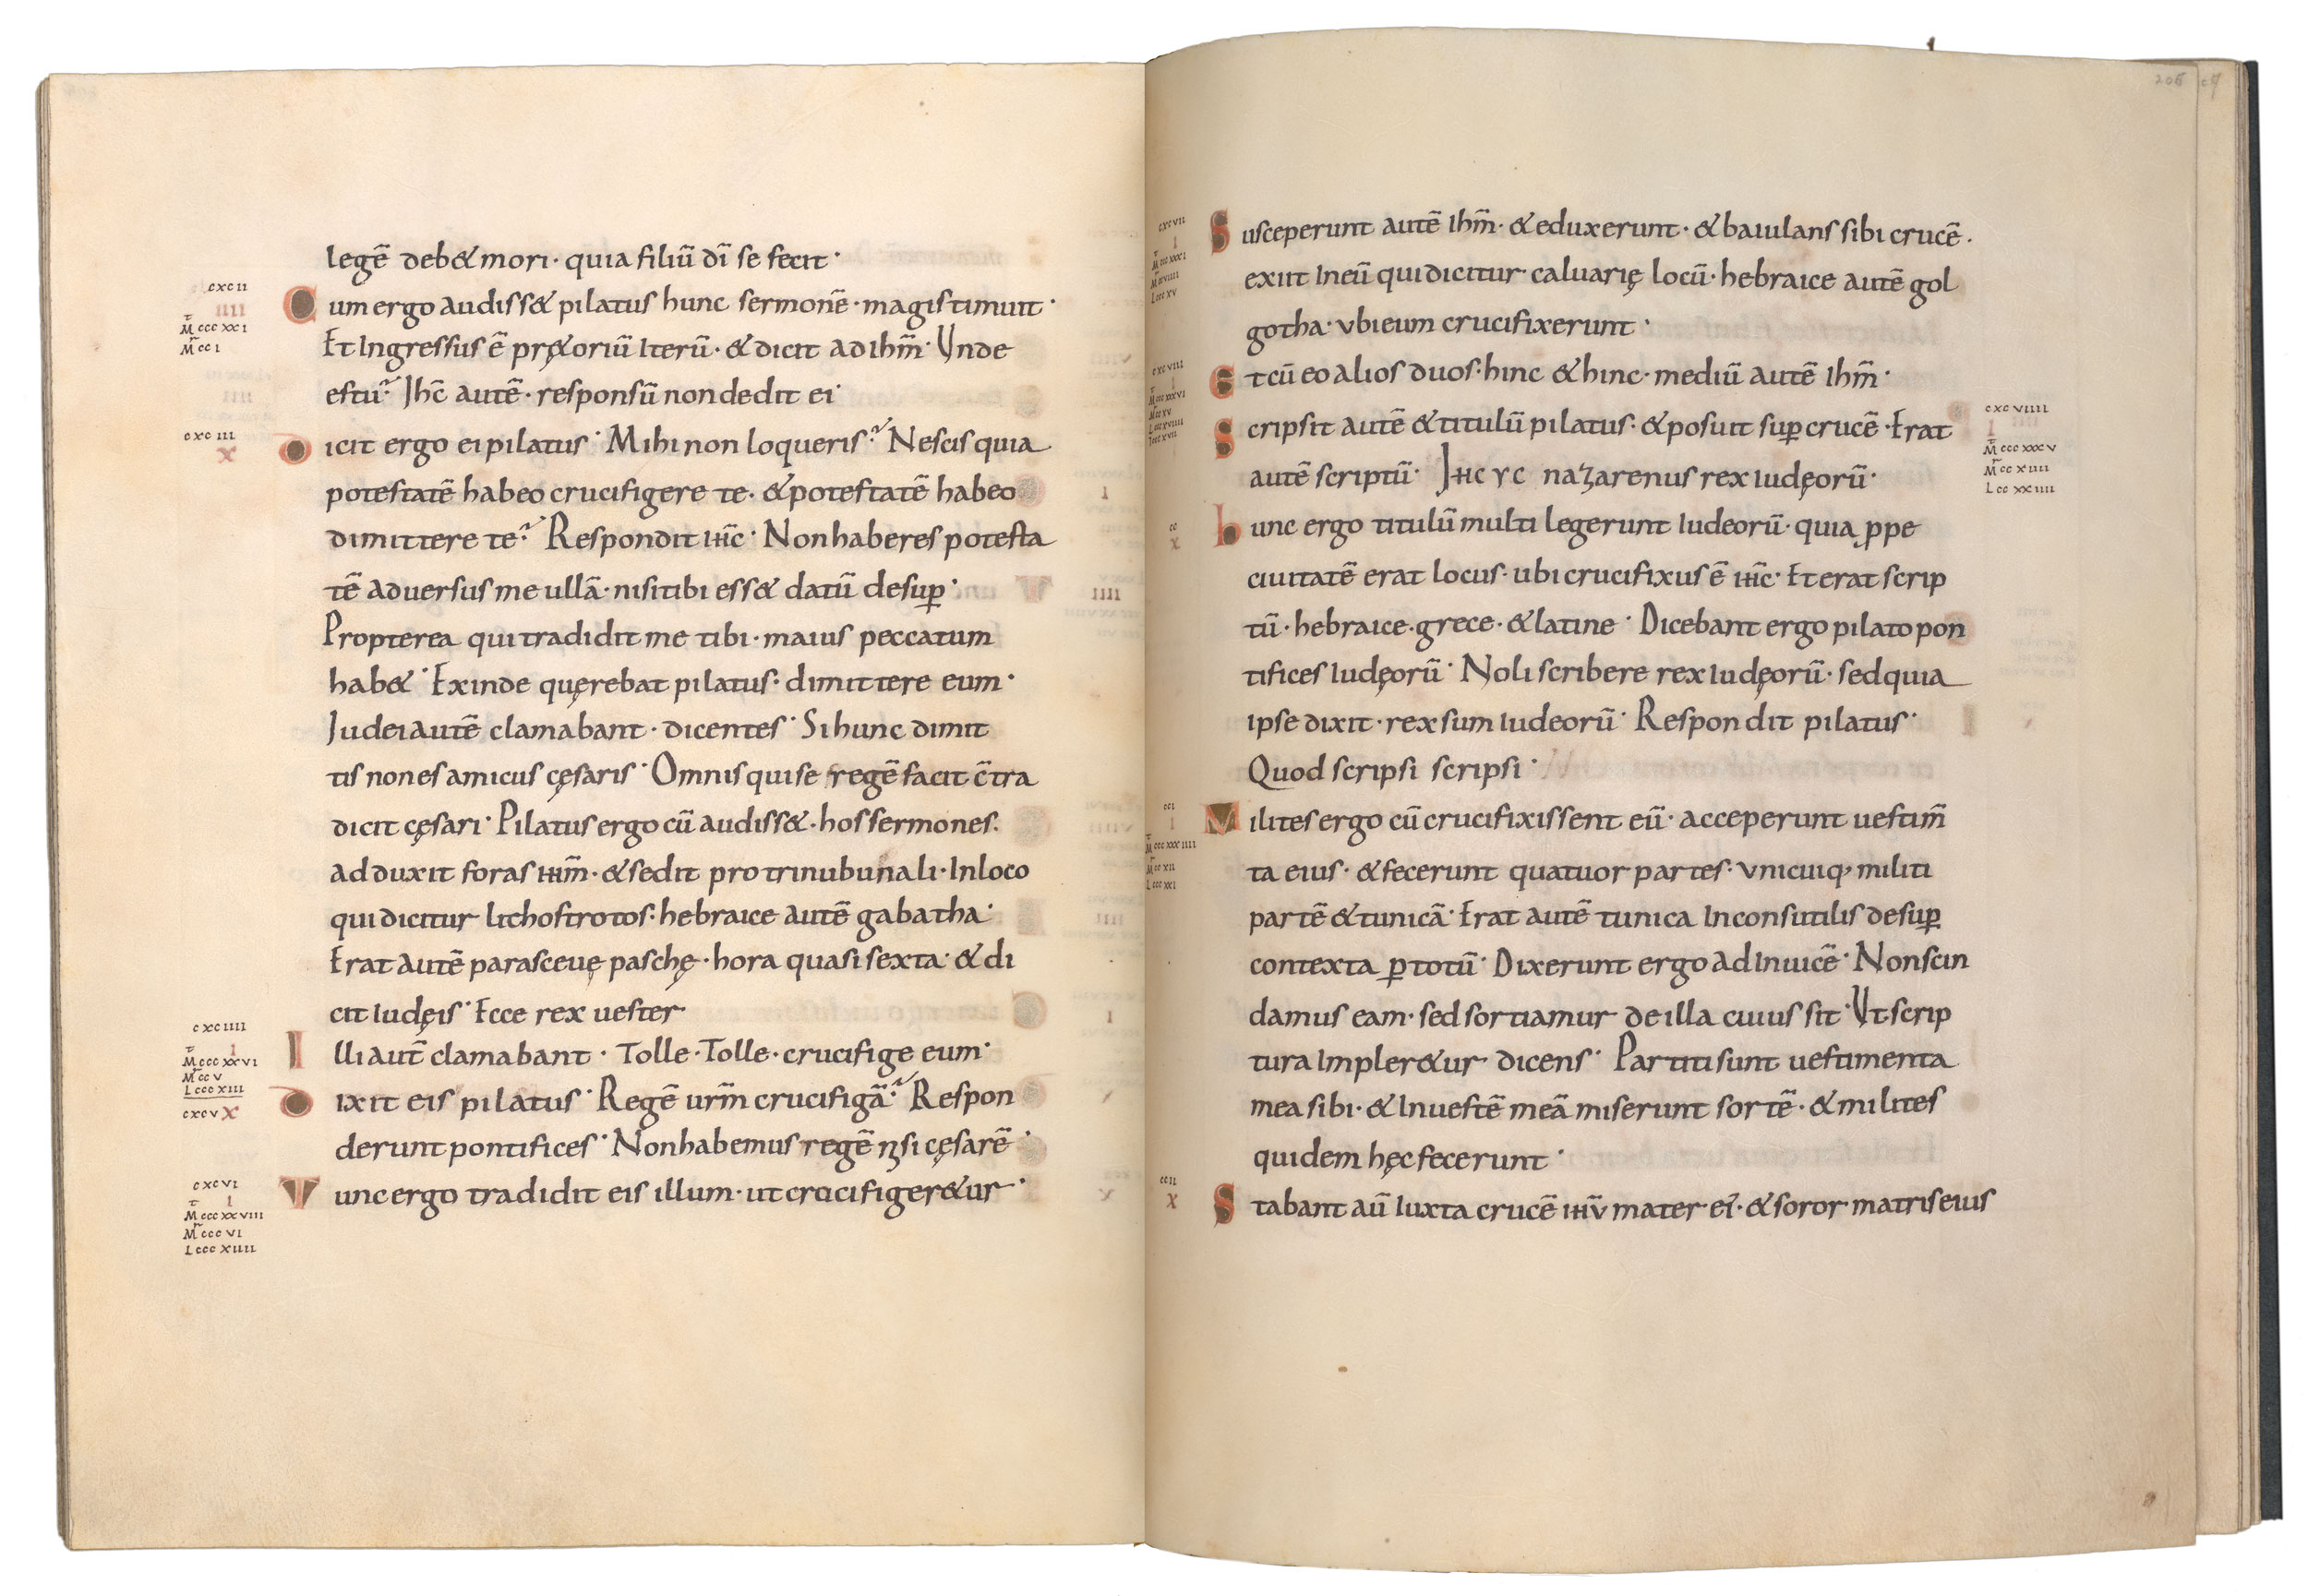 legē deb& mori · quia filiū dī se fecit ·
cxcii
Cum ergo audiss& pilatus hunc sermonē · magis timuit ·
iiii
M cccxxi
M cci
Et Ingressus ē pr&oriū Iterū · & dicit ad ihm̄ · Unde
es tu? Jhc̄ autē · responsū non dedit ei ·
cxciii
x
Dicit ergo ei pilatus · Mihi non loqueris? Nescis quia
potestatē habeo crucifigere te · & potestatē habeo
dimittere te? Respondit ihc̄ · Non haberes potesta
tē adversus me ullā · nisi tibi ess& datū desup̄ ·
Propterea qui tradidit me tibi · maius peccatum
hab& · Exinde quęrebat pilatus · dimittere eum ·
Judei autē clamabant · dicentes · Si hunc dimit
tis non es amicus cęsaris · Omnis qui se regē facit c̄tra
dicit cęsari · Pilatus ergo cū audiss& · hos sermones ·
adduxit foras ihm̄ · & sedit pro trinubunali · In loco
qui dicitur lithostrotos · hebraice autē gabatha ·
Erat autē parasceuę paschę · hora quasi sexta · & di
cit iudęis · Ecce rex uester
cxciiii
i
M cccxxvi
M ccv
L cccxiii
Illi aut̄ clamabant · Tolle · Tolle · crucifige eum ·
cxcv x
Dixit eis pilatus · Regē ur̄m crucifigā? Respon
derunt pontifices · Non habemus regē nsi cęsarē ·
cxcvi
i
M cccxxviii
M cccvi
L cccxiiii
Tunc ergo tradidit eis illum · ut crucifiger&ur ·
206
cxcvii
i
M cccxxxi
L cccxv
Susceperunt autē ihm̄ · & eduxerunt · & baiulans sibi crucē ·
exiit In eū qui dicitur · caluarię locū · hebraice autē gol
gotha · ubi eum crucifixerunt ·
cxcviii
i
M cccxxxvi
M ccxv
L ccxviii
Et cū eo alios duos · hinc & hinc · mediū autē ihm̄ ·
Scripsit autē & titulū pilatus · & posuit sup̄ crucē · Erat
cxcviiii
i
M cccxxxv
M ccxiiii
L ccxxiiii
autē scriptū · Jhc yc nazarenus rex iudęorū ·
cc
x
hunc ergo titulū multi legerunt Iudeorū · quia ꝓpe
ciuitatē erat locus · ubi crucifixus ē ihc̄ · Et erat scrip
tū · hebraice · grece · & latine · Dicebant ergo pilato pon
tifices Iudęorū · Noli scribere rex Iudęorū · sed quia
ipse dixit · rex sum Iudeorū · Respondit pilatus ·
Quod scripsi scripsi ·
cci
i
M cccxxxiiii
M ccxii
L cccxxi
Milites ergo cū crucifixissent eū · acceperunt uestim̄
ta eius · & fecerunt quatuor partes · unicuiq; militi
partē & tunicā · Erat autē tunica Inconsutilis desup̄
contexta ꝑ totū · Dixerunt ergo ad Inuicē · Non scin
damus eam · sed sortiamur de illa cuius sit · Ut scrip
tura Impler&ur dicens · Partiti sunt uestimenta
mea sibi · & In uestē meā miserunt sortē · & milites
quidem hęc fecerunt ·
ccii
x
Stabant aū Iuxta crucē ihū mater ei · & soror matris eius